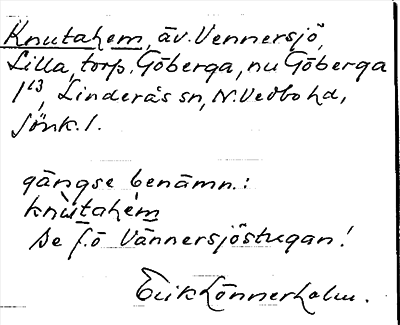 Knutahem, äv. Vennersjö,
Lilla, torp. Göberga, nu Göberga
1¹³, Linderås sn, N. Vedbo hd,
Jönk. l.
gängse benämn.:
knùtahèm
Se f.ö Vännersjöstugan!
Erik Lönnerholm.